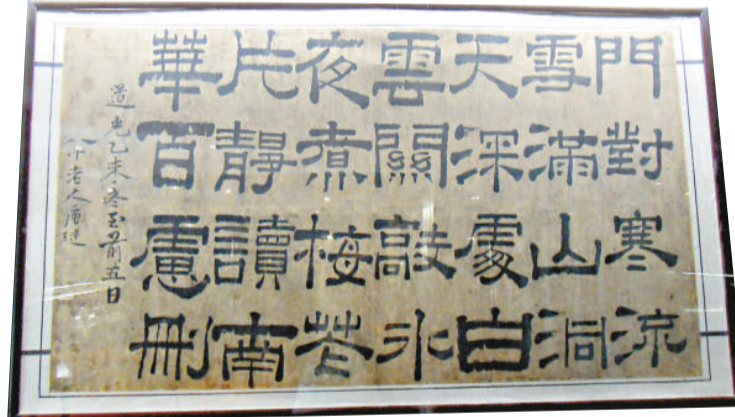 門對寒流
雪滿山洞
天深處白
雲關敲氷
夜煮梅花
片靜讀南
華百慮刪
道光乙未冬至前五日
老人